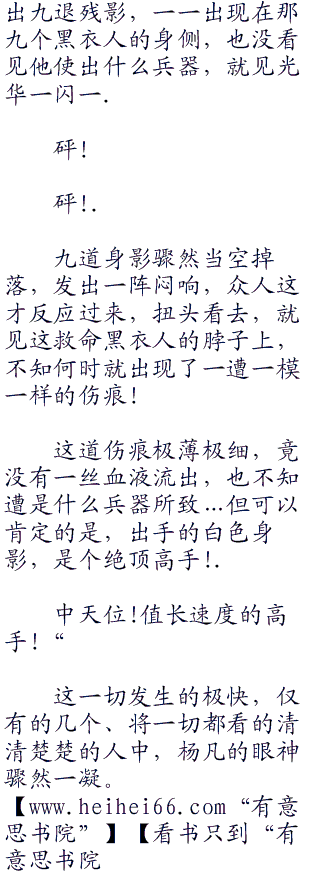 出九退残影，一一出现在那
九个黑衣人的身侧，也没看
见他使出什么兵器，就见光
华一闪一.
砰！
砰!.
九道身影骤然当空掉
落，发出一阵闷响，众人这
才反应过来，扭头看去，就
见这救命黑衣人的脖子上，
不知何时就出现了一遭一模
一样的伤痕！
这道伤痕极薄极细，竟
没有一丝血液流出，也不知
遭是什么兵器所致…但可以
肯定的是，出手的白色身
影，是个绝顶高手!.
中天位!值长速度的高
手！“
这一切发生的极快，仅
有的几个、将一切都看的清
清楚楚的人中，杨凡的眼神
骤然一凝。
【www.heihei66.com“有意
思书院”】【看书只到“有
意思书院